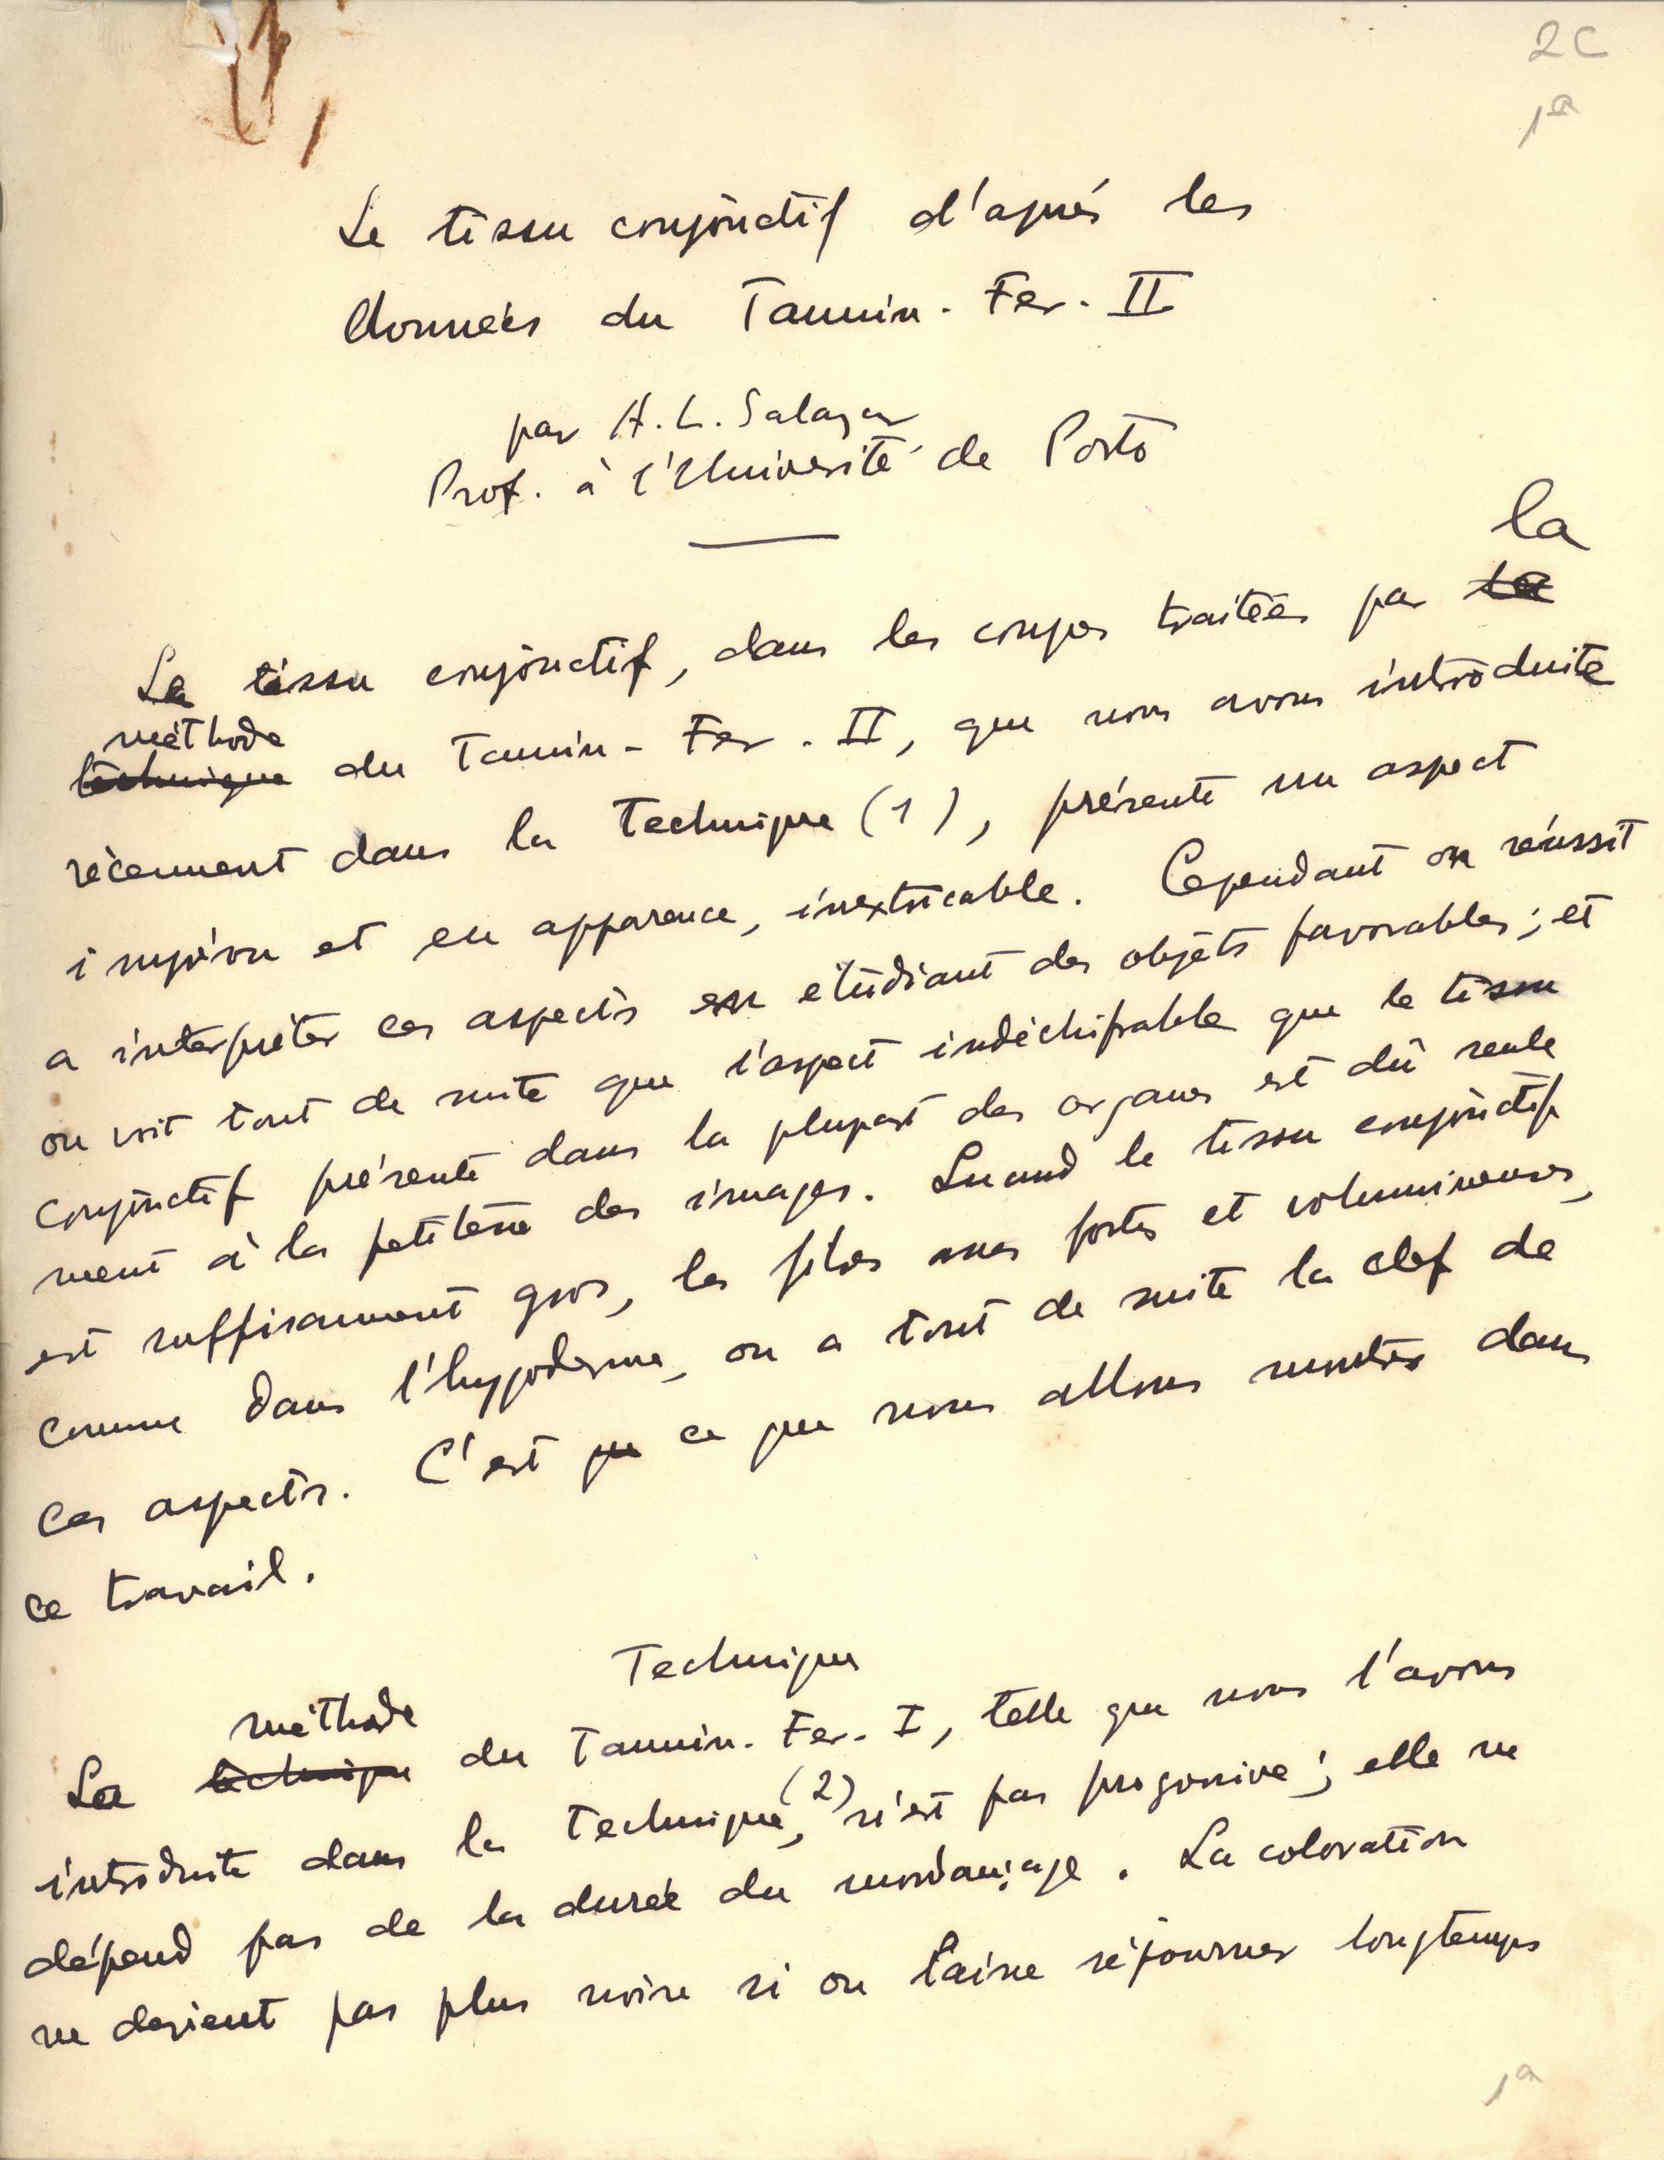 2C
1ª
Le tissu conjonctif d'après les
données du Tannin-Fer-II
par A. L. Salazar
Prof. à l'Université de Porto
la
Le tissu conjonctif, dans les coupes traitées par
méthode
technique du Tannin-Fer-II, que nous avons introduite
récemment dans la Technique (1), présente un aspect
imprévu et en apparence, inextricable. Cependant on réussit
a interpréter ces aspects en étudiant des objets favorables; et
on voit tout de suite que l'aspect indéchifrable que le tissu
conjonctif présente dans la plupart des organes est dû seule
ment à la petitesse des images. Quand le tissu conjonctif
est suffisamment gros, les fibres assez fortes et volumineuses,
comme dans l'hypoderme, on a tout de suite la clef de
ces aspects. C'est que ce que nous allons montrer dans
ce travail.
Technique
méthode
La technique du Tannin-Fer-I, telle que nous l'avons
introduite dans la Technique, (2) n'est pas progressive; elle ne
dépend pas de la durée du mordançage. La coloration
ne devient pas plus noire si on laisse séjourner longtemps
1ª